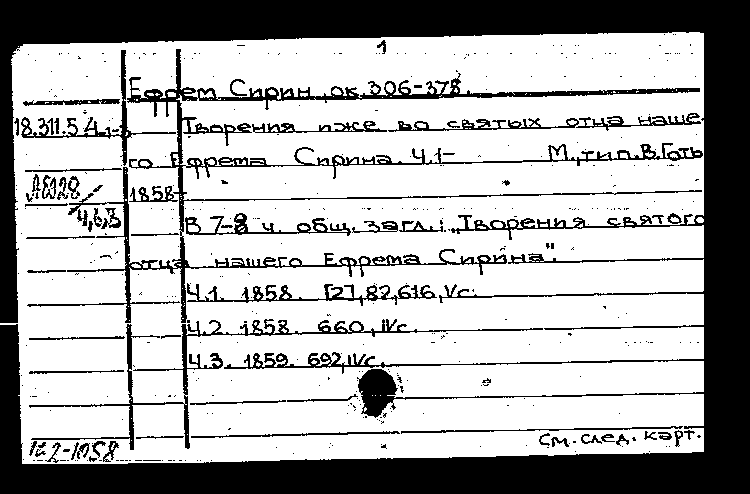 1
Ефрем Сирин, ок. 306-378.
18.311.5 Творения иже во святых отца наше-
го Ефрема Сирина. Ч.1- М., тип. В. Готье
1858-
4,6,3 В 7-8 ч. общ. загл.: „Творения святого
отца нашего Ефрема Сирина".
Ч.1. 1858. [2], 82, 616, V с.
Ч.2. 1858. 660, IV с.
Ч.3. 1859. 692, IV с.
См. след. карт.